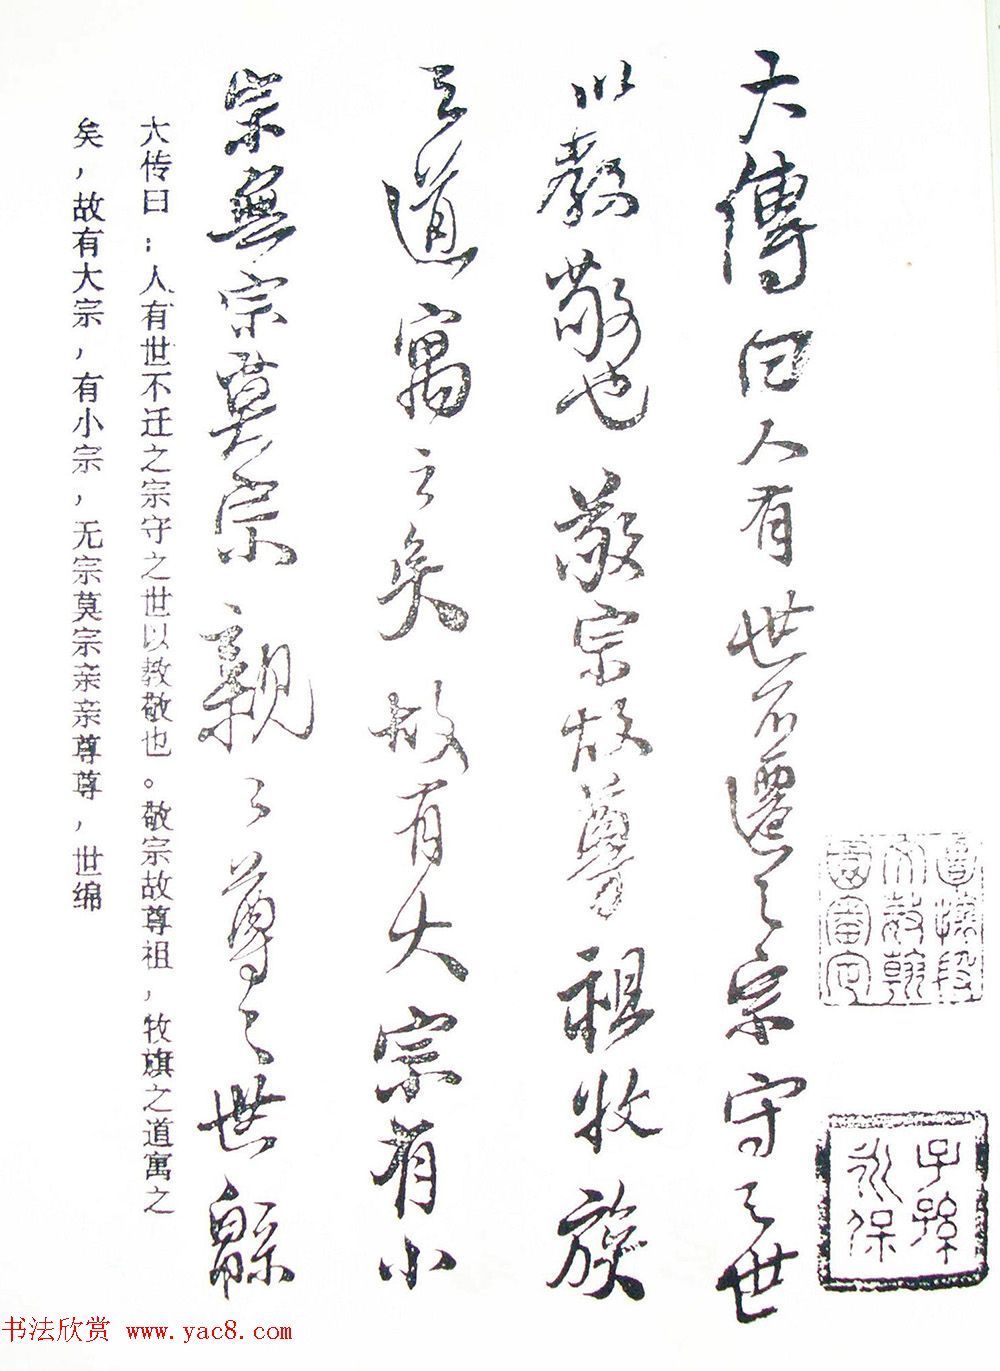 子孫
永保
大傳曰人有世不遷之宗守之世
以教敬也敬宗故尊祖牧族
之道寓之矣故有大宗有小
宗無宗莫宗親々尊々世緜
大传曰：人有世不迁之宗守之世以教敬也。敬宗故尊祖，牧旗之道寓之
矣，故有大宗，有小宗，无宗莫宗亲亲尊尊，世绵
书法欣赏 www.yac8.com